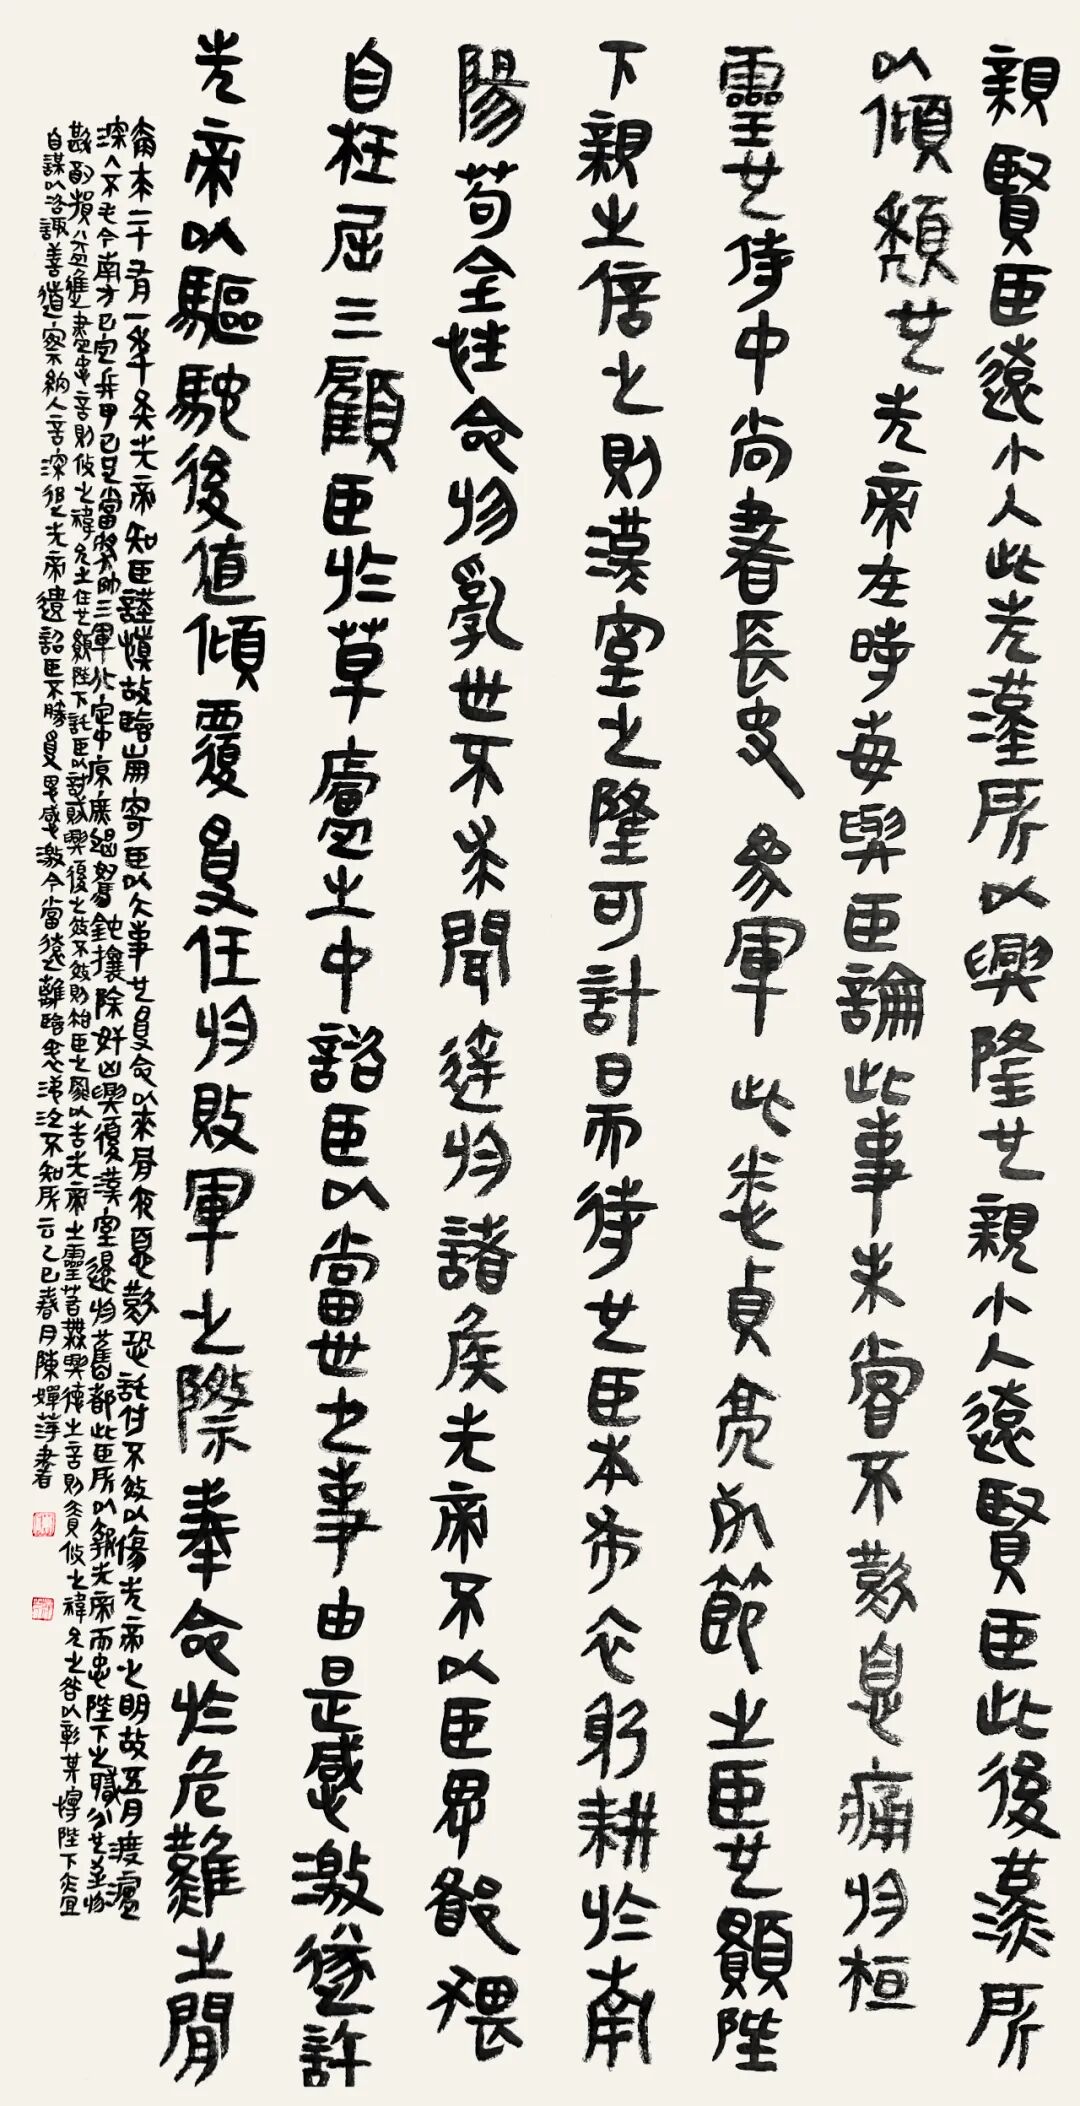 親賢臣遠小人此先漢所以興隆也親小人遠賢臣此後漢所
以傾頹也先帝在時每與臣論此事未嘗不歎息痛於桓
靈也侍中尚書長史參軍此悉貞亮死節之臣也願陛
下親之信之則漢室之隆可計日而待也臣本布衣躬耕於南
陽苟全性命於亂世不求聞達於諸侯先帝不以臣卑鄙猥
自枉屈三顧臣於草廬之中諮臣以當世之事由是感激遂許
先帝以驅馳後值傾覆受任於敗軍之際奉命於危難之間
爾來二十有一年矣先帝知臣謹慎故臨崩寄臣以大事也受命以來夙夜憂歎恐託付不效以傷先帝之明故五月渡瀘
深入不毛今南方已定兵甲已足當獎帥三軍北定中原庶竭駑鈍攘除奸凶興復漢室還於舊都此臣所以報先帝而忠陛下之職分也至於
斟酌損益進盡忠言則攸之禕允之任也願陛下託臣以討賊興復之效不效則治臣之罪以告先帝之靈若無興德之言則責攸之禕允之咎以彰其慢陛下亦宜
自謀以諮諏善道察納言深追先帝遺詔臣不勝受恩感激今當遠離臨表涕泣不知所云乙巳春月陳嬋萍書